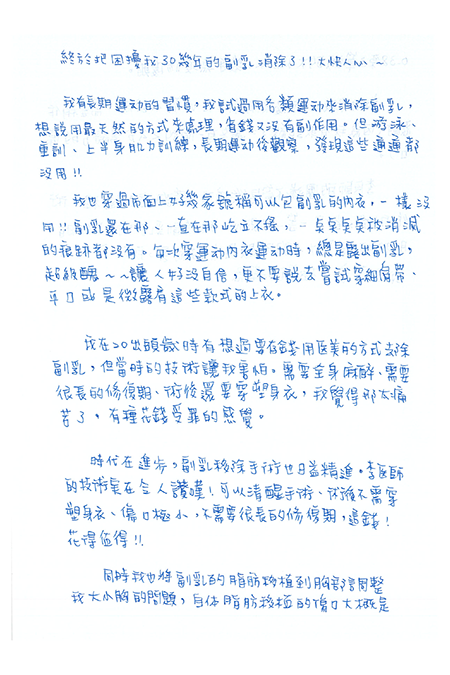 終於把困擾我30幾年的副乳消除了!!大快人心~
我有長期運動的習慣,我試過用各類運動來消除副乳,
想說用最天然的方式來處理,省錢又沒有副作用。但游泳、
重訓、上半身肌力訓練,長期運動後觀察,發現這些通通都
沒用!!
我也穿過市面上好幾家號稱可以包副乳的內衣,一樣沒
用!!副乳還在那、一直在那屹立不搖,一點點點點被消減
的痕跡都沒有。每次穿運動內衣運動時,總是露出副乳,
超級醜~~讓人好沒自信,更不要說去嘗試穿細肩帶、
平口或是微露有這些款式的上衣。
我在20出頭歲時有想過要存錢用醫美的方式去除
副乳,但當時的技術讓我害怕。需要全身麻醉、需要
很長的修復期、術後還要穿塑身衣,我覺得那太痛
苦了。有種花錢受罪的感覺。
時代在進步,副乳移除手術也日益精進。李醫師
的技術實在令人讚嘆!可以清醒手術、術後不需穿
塑身衣、傷口極小,不需要很長的修復期,這錢!
花得值得!!
同時我也將副乳的脂肪移植到胸部調整
我大小胸的問題,自体脂肪移植的傷口大概是